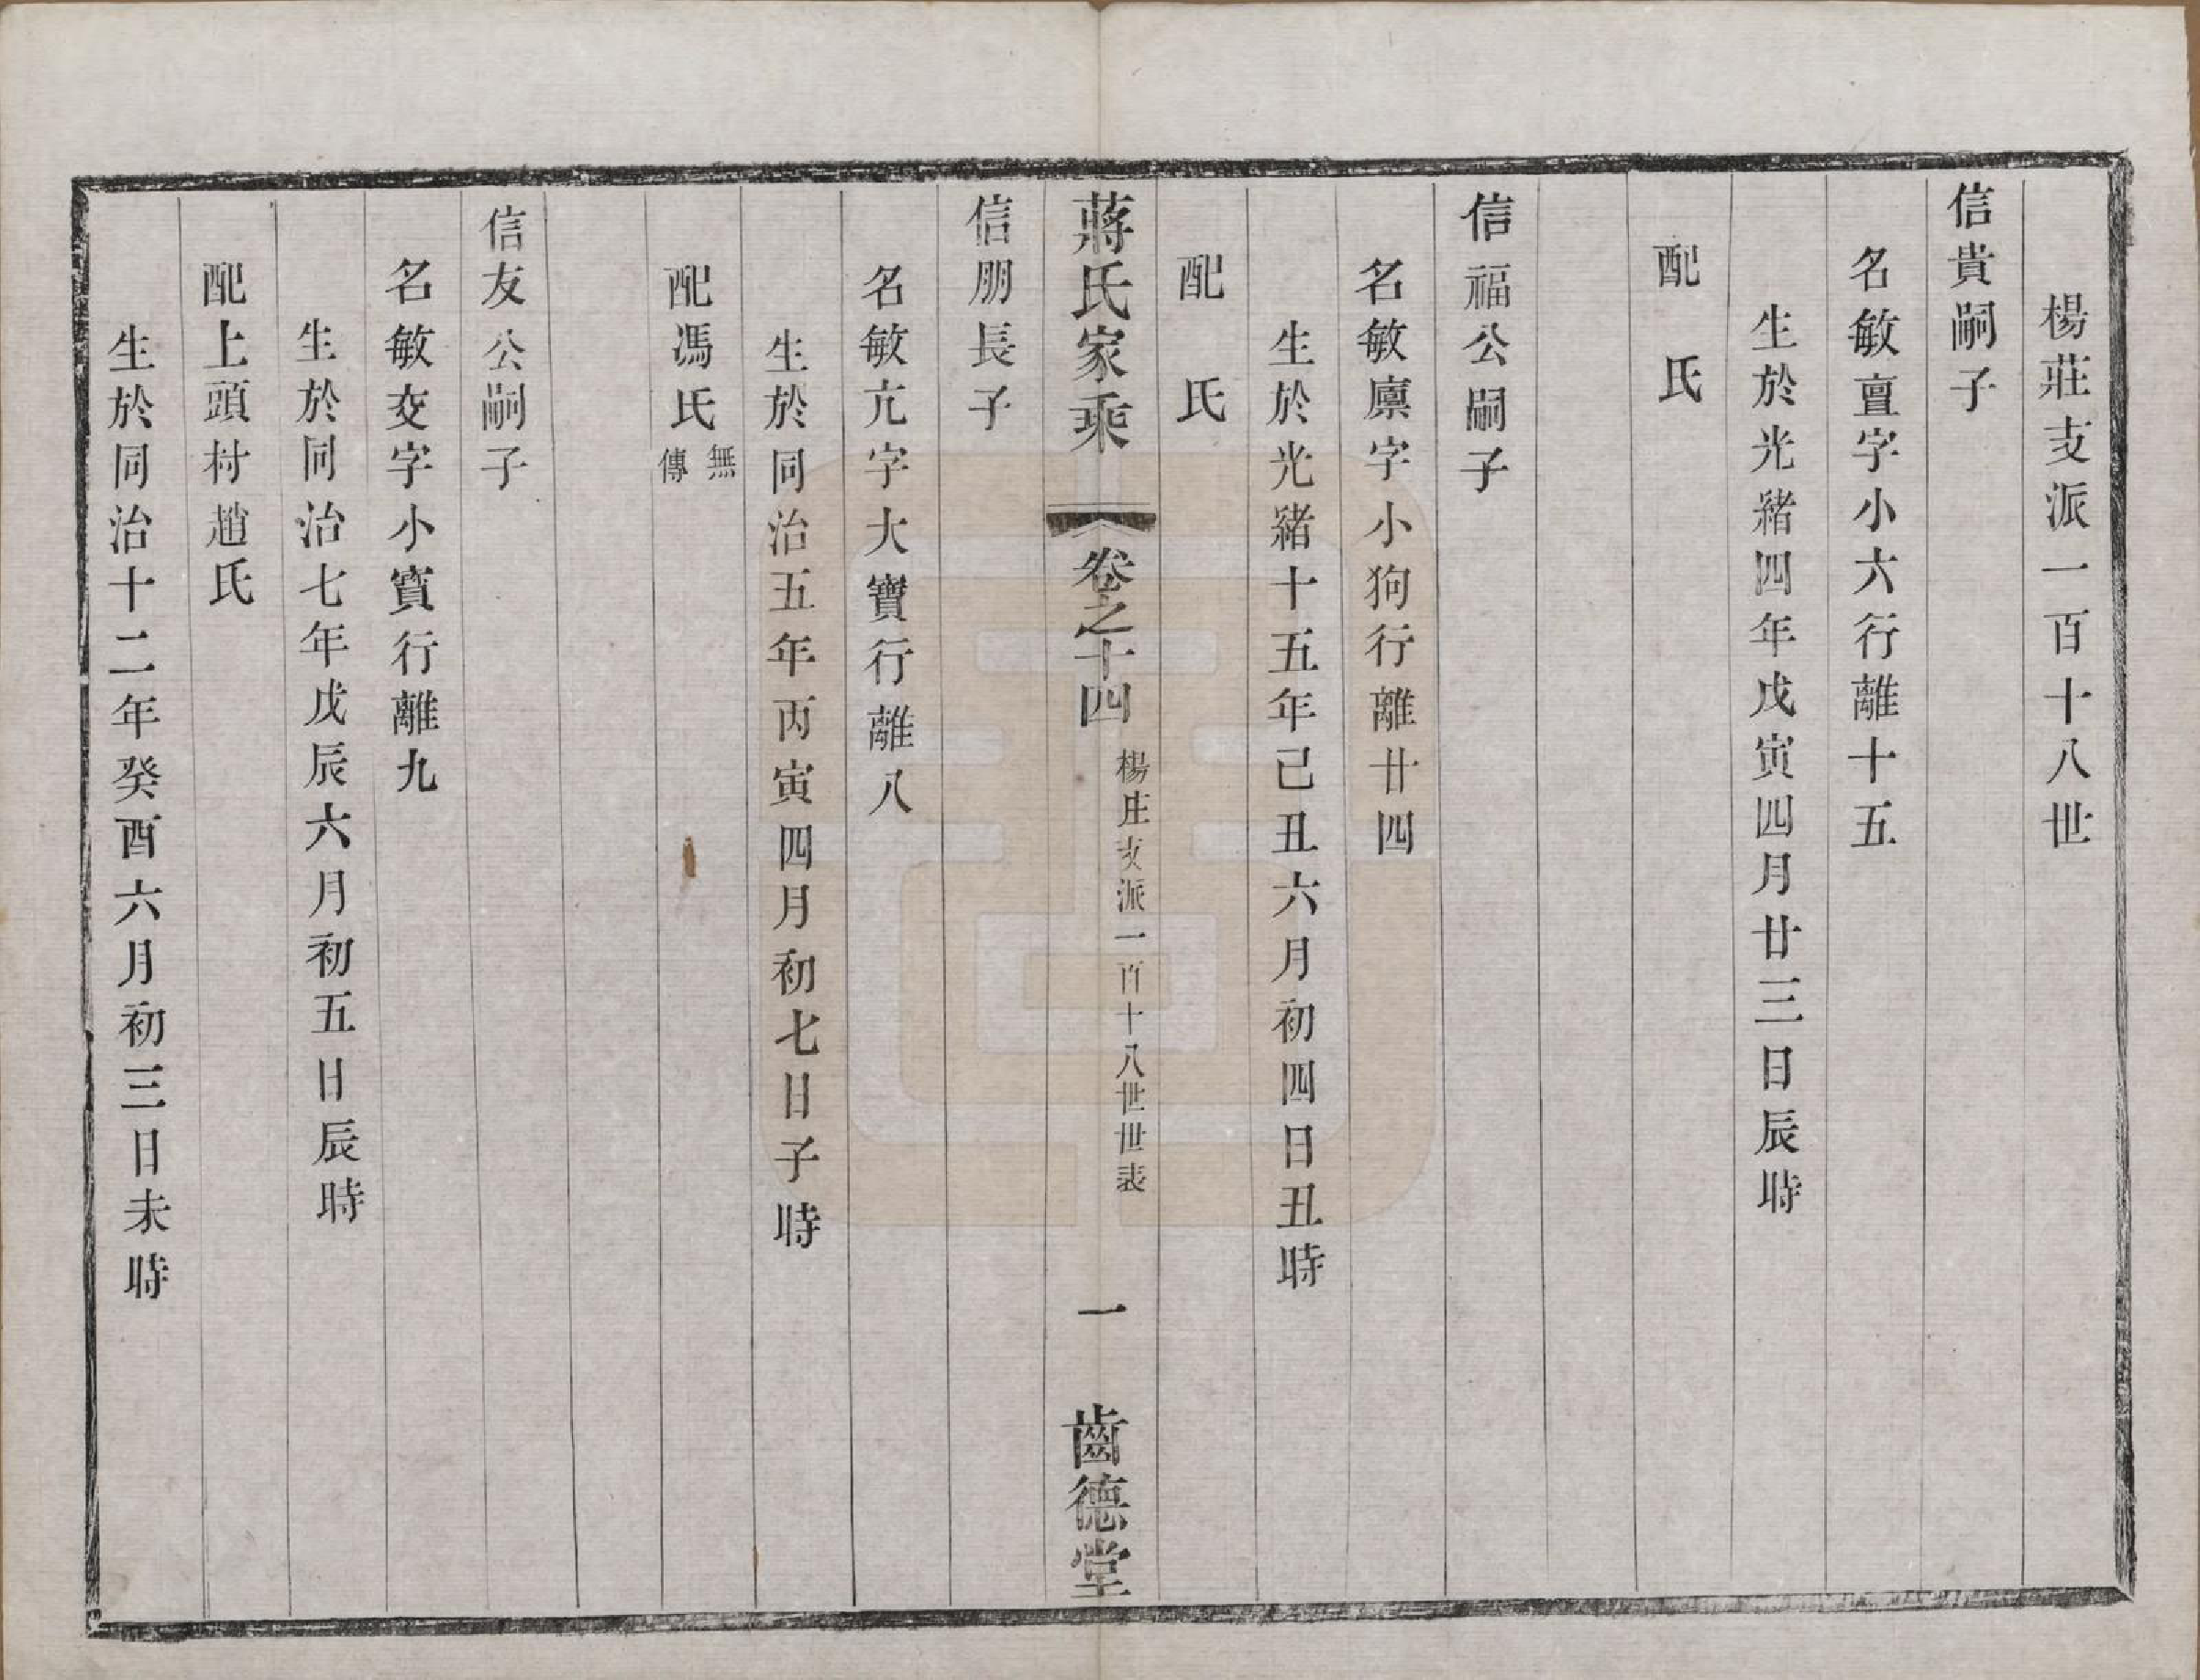 楊莊支派一百十八世
信貴嗣子
名敏亶字小六行離十五
生於光緒四年戊寅四月廿三日辰時
配 氏
信福公嗣子
名敏廪字小狗行離廿四
生於光緒十五年己丑六月初四日丑時
配 氏
蔣氏家乘 卷之十四 楊庄支派一百十八世世表 一 齒德堂
信朋長子
名敏亢字大寶行離八
生於同治五年丙寅四月初七日子時
配馮氏無傳
信友公嗣子
名敏交字小寶行離九
生於同治七年戊辰六月初五日辰時
配上頭村趙氏
生於同治十二年癸酉六月初三日未時